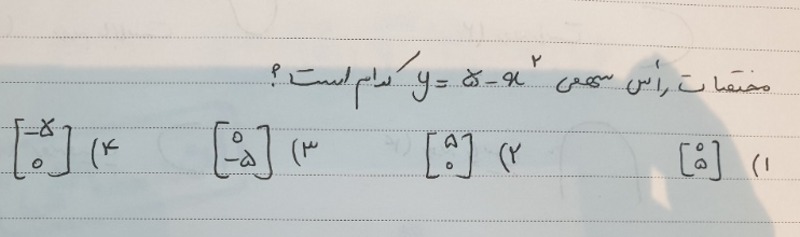 مختصات رأس سهمی y = ۵ - x² کدام است ؟
۱) [۰ ۵] ۲) [۵ ۰] ۳) [۰ -۵] ۴) [-۵ ۰]